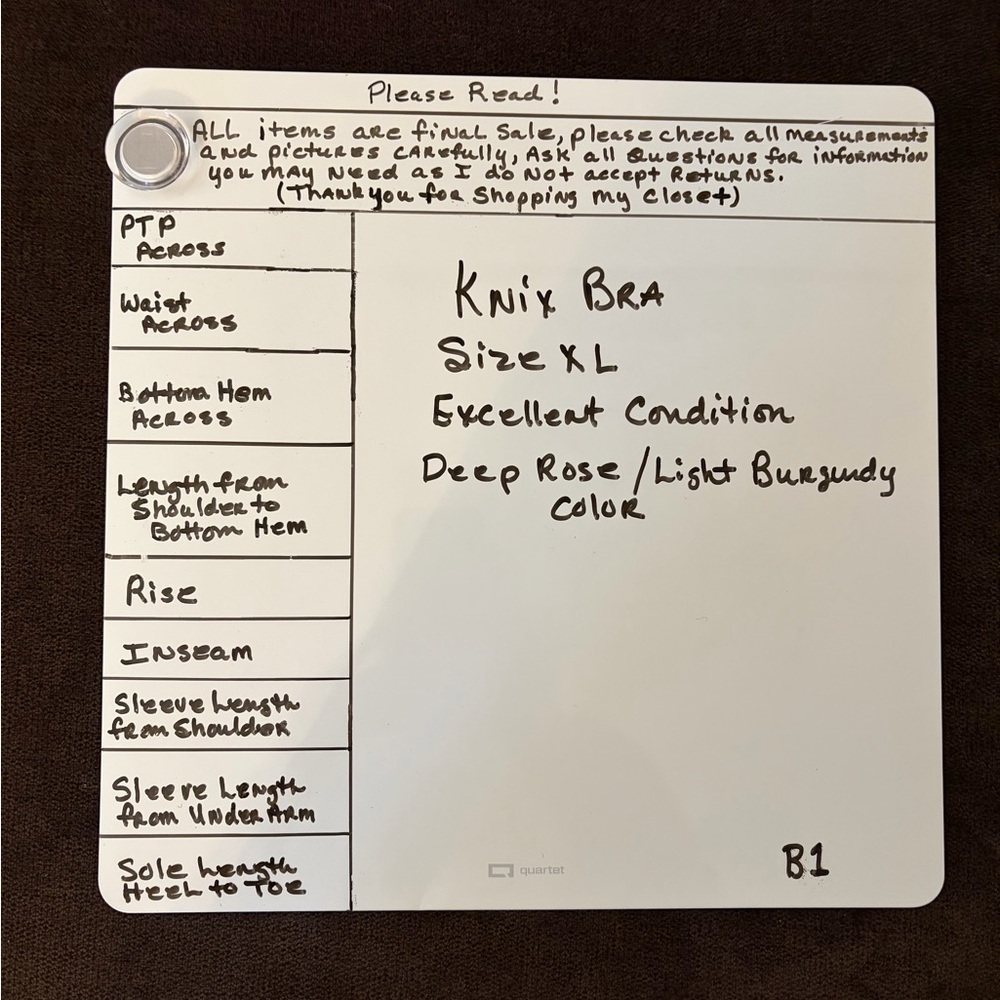 Please Read!
ALL items are final Sale, please check all measurements
and pictures carefully, Ask all Questions for information
you may need as I do Not accept Returns.
(Thank you for Shopping my Closet)
PTP
Across
Waist
Across
Bottom Hem
Across
Length from
Shoulder to
Bottom Hem
Rise
Inseam
Sleeve Length
from Shoulder
Sleeve Length
from Under Arm
Sole Length
Heel to Toe
Knix Bra
Size XL
Excellent Condition
Deep Rose / Light Burgundy
Color
quartet
B1